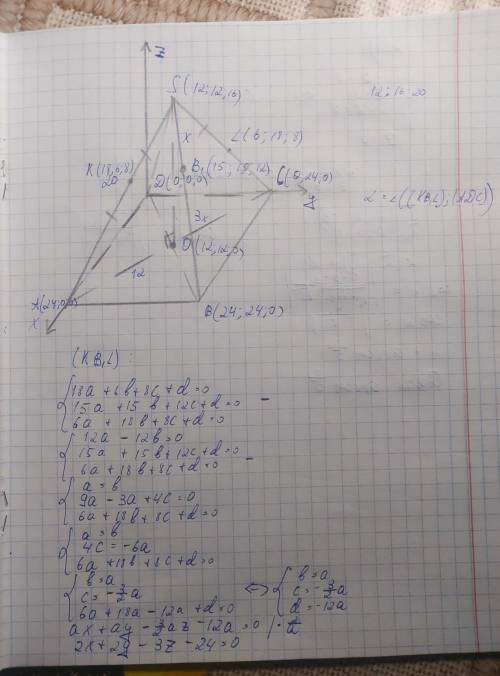 Z
S(12;12;16)
12;16;20
x
L(6;18;8)
K(18;6;8)
20
B₁(15;15;12)
D(0;0;0)
C(0;24;0)
y
3x
α=∠((KB₁L);(ADC))
O(12;12;0)
12
A(24;0;0)
x
B(24;24;0)
(KB₁L):
{18a+6b+8c+d=0
15a+15b+12c+d=0 -
6a+18b+8c+d=0
{12a-12b=0
15a+15b+12c+d=0
6a+18b+8c+d=0 -
{a=b
9a-3a+4c=0
6a+18b+8c+d=0
{a=b
4c=-6a
6a+18b+8c+d=0
{b=a
c=-3/2a
6a+18a-12a+d=0
<-> {b=a
c=-3/2a
d=-12a
ax+ay-3/2az-12a=0 |
2x+2y-3z-24=0